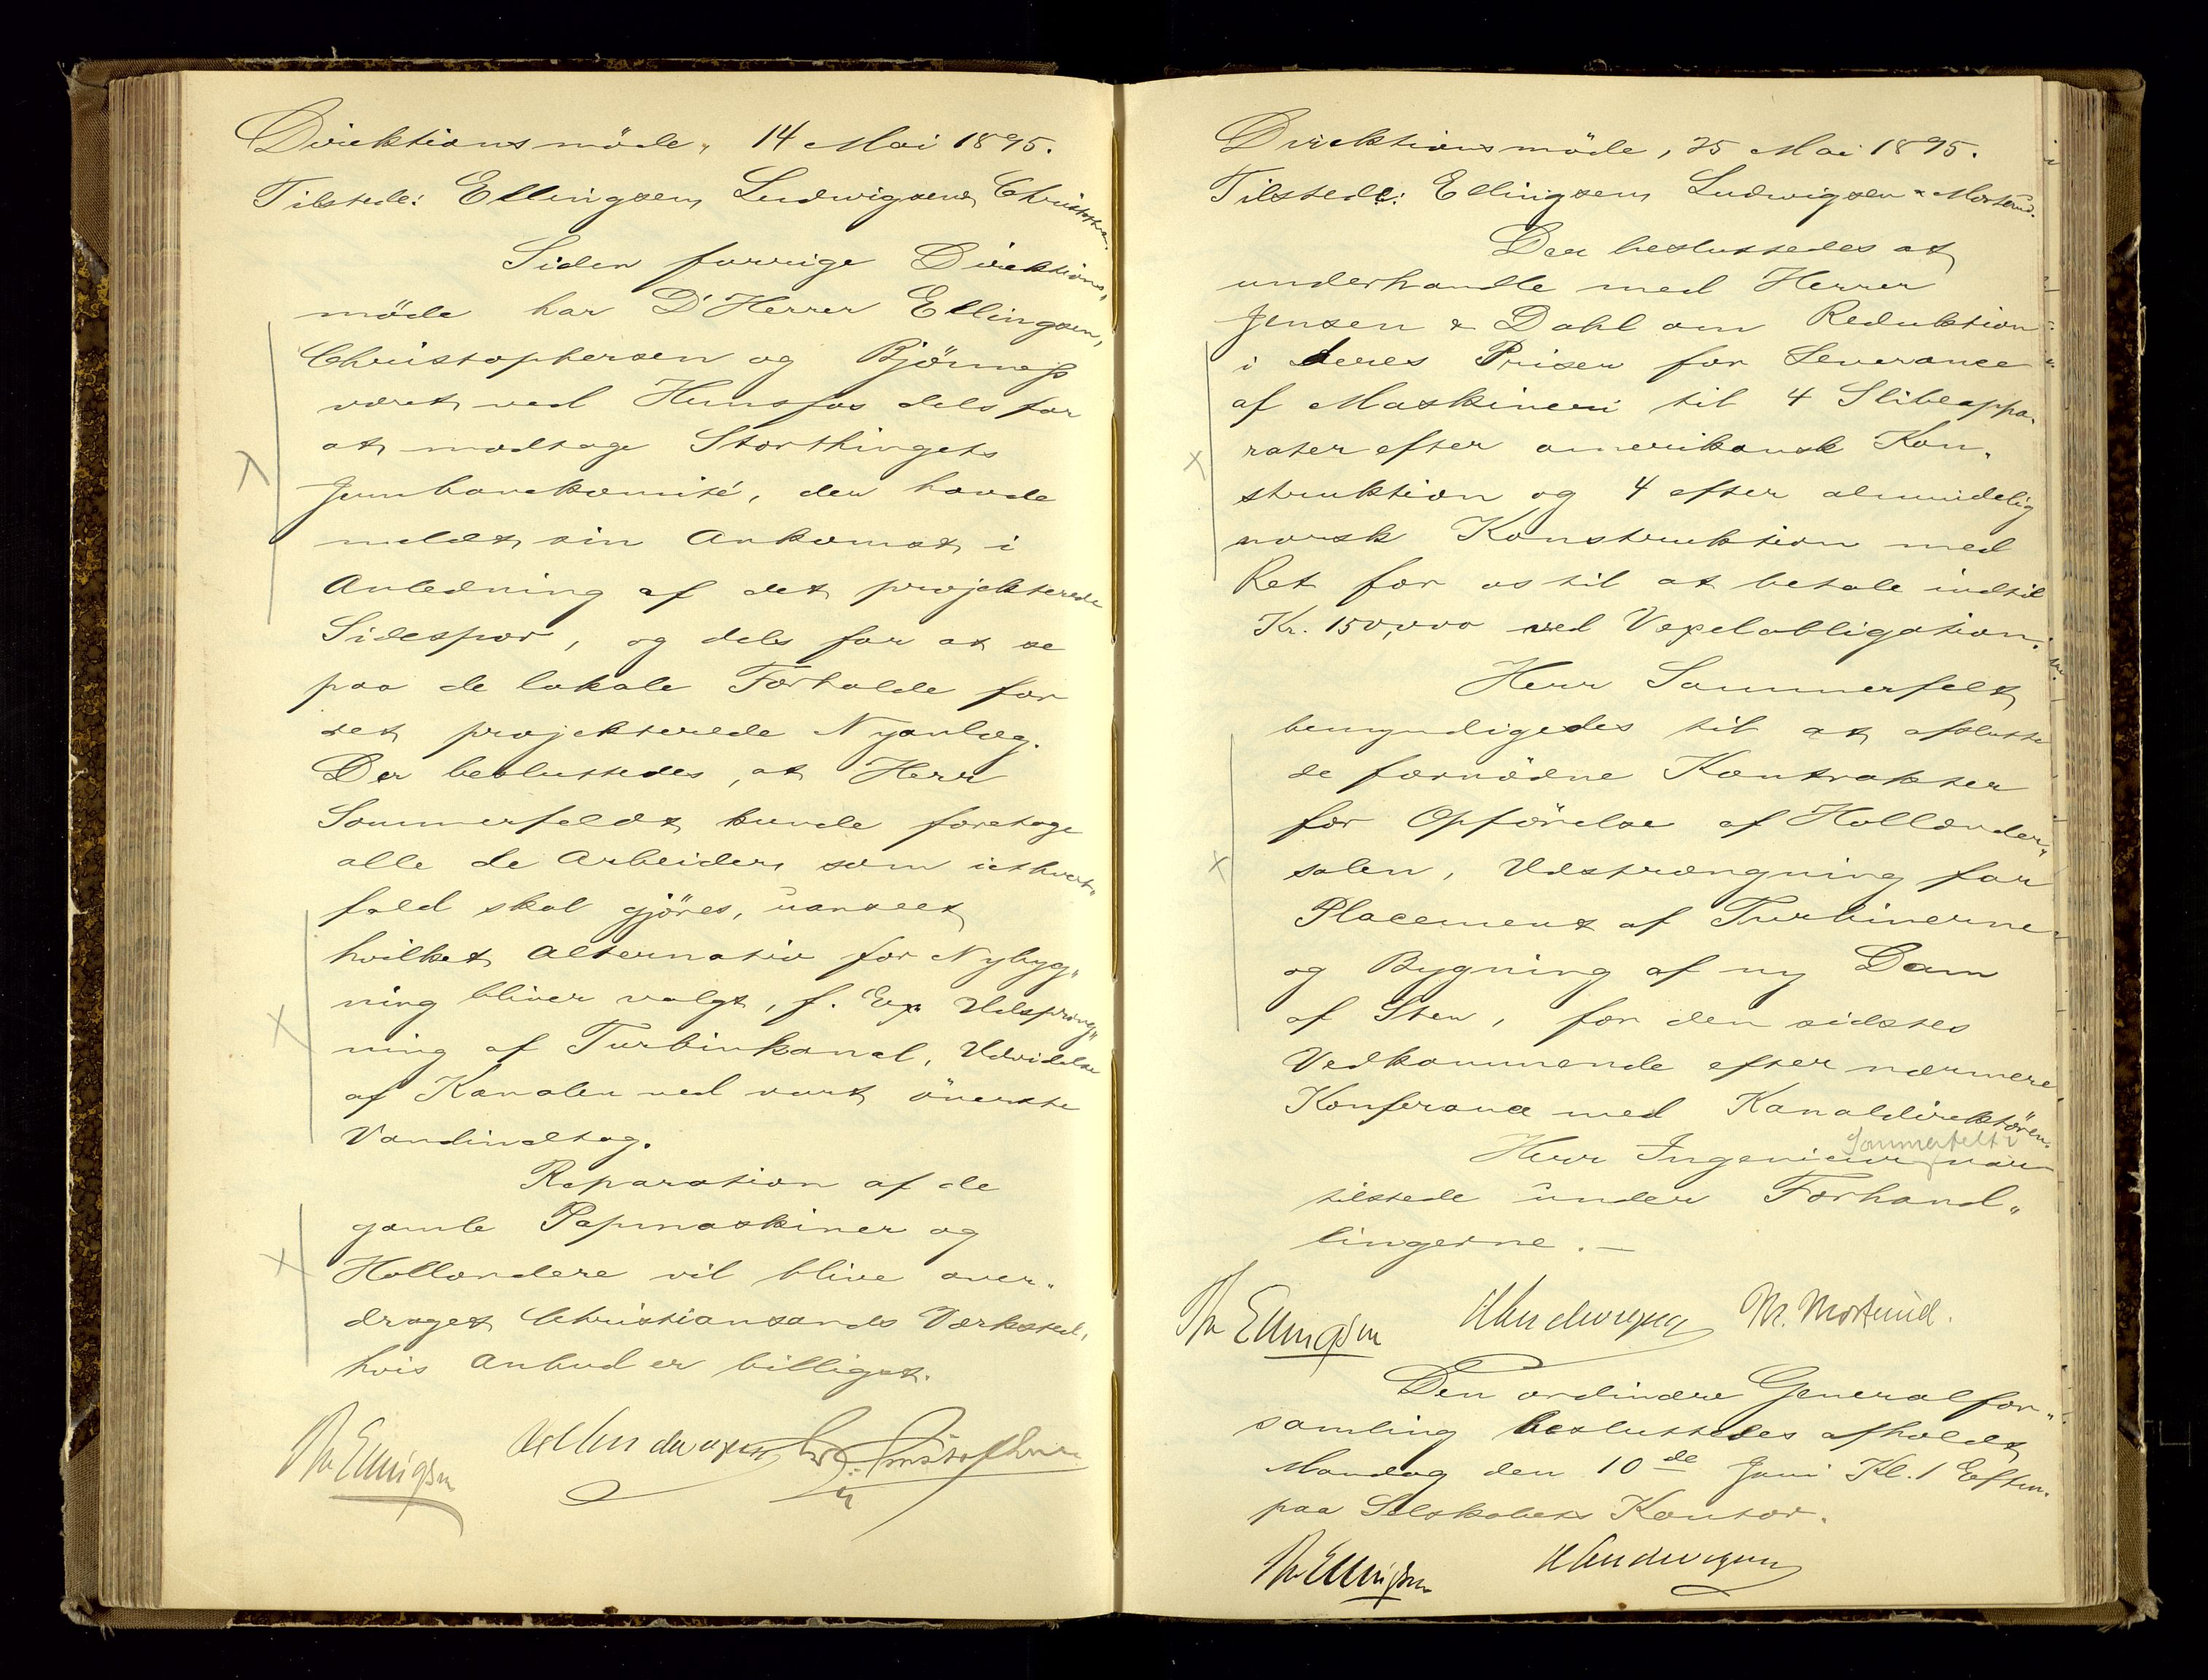 Direktionsmöde, 14 Mai 1895.
Tilstede: Ellingsen, Ludwigsen & Christophs.
Siden forrige Direktions„
möde har D'Herrer Ellingsen,
Christophersen og Björneß
været ved Hunsfos dels for
at modtage Storthingets
Jernbanekomité, der havde
meldt sin Ankomst i
Anledning af det projekterede
Sidespor, og dels for at se
paa de lokale Forholde for
det projekterede Nyanlæg.
Der besluttedes, at Herr
Sommerfeldt kunde foretage
alle de Arbeider, som iethvert„
fald skal gjöres, uanseet
hvilket Alternativ for Nybyg„
ning bliver valgt, f. Ex. Udspræng„
ning af Turbinkanal, Udvidelse
af Kanalen ved vort överste
Vandindtag.
Reparation af de
gamle Papmaskiner og
Hollændere vil blive over„
draget Christianssands Værksted,
hvis Anbud er billigst.
Th Ellingsen H Ludwigsen Chr. Christophersen
Direktionsmöde, 25 Mai 1895.
Tilstede: Ellingsen, Ludwigsen & Mortend.
Der besluttedes at
underhandle med Herrer
Jensen & Dahl om Reduktion
i deres Priser for Leverance
af Maskineri til 4 Slibeappa„
rater efter amerikansk Kon„
struktion og 4 efter almindelig
norsk Konstruktion med
Ret for os til at betale indtil
Kr. 150,000 ved Vexelobligation.
Herr Sommerfelt
bemyndigedes til at afslutte
de fornödne Kontrakter
for Opförelse af Hollænder„
salen, Udsprængning for
Placement af Turbinerne
og Bygning af ny Dam
af Sten, for den sidstes
Vedkommende efter nærmere
Konferance med Kanaldirektören.
Sommerfelt
Herr Ingeniör var
tilstede under Forhand„
lingerne. —
Th Ellingsen H Ludwigsen M. Mortend.
Den ordinære Generalfor„
samling besluttedes afholdt
Mandag den 10de Juni Kl. 1 Efterm.
paa Selskabets Kontor.
Th Ellingsen H Ludwigsen